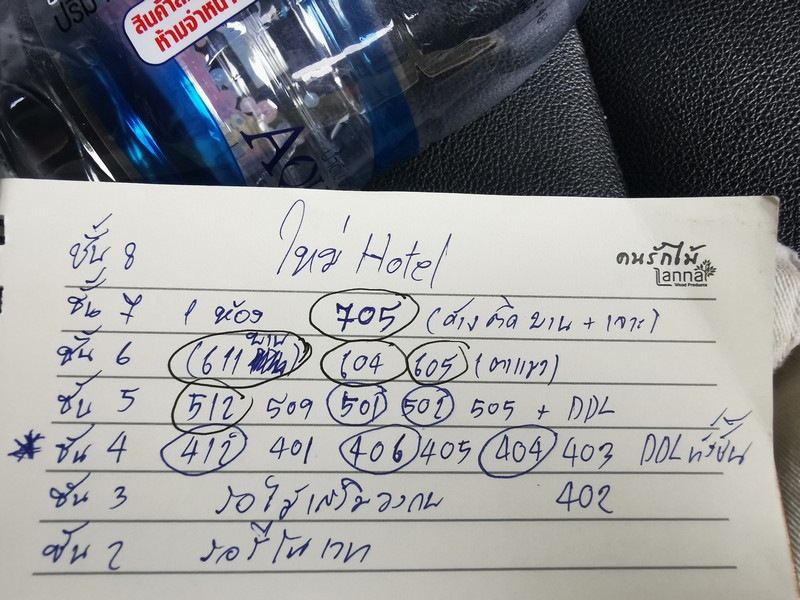 สินค้า
ห้ามจำหน่า
ใหม่ Hotel
ชั้น 8
คนรักไม้
Lanna
Wood Products
ชั้น 7 1 ห้อง 705 (ค้าง ติด บาน + เจาะ)
ชั้น 6 (611 บาน) 604 605
ชั้น 5 512 509 501 502 505 + DDL
* ชั้น 4 412 401 406 405 404 403 DDL ทั้งชั้น
ชั้น 3 รอไม้ 402
ชั้น 2 รอรีโนเวท